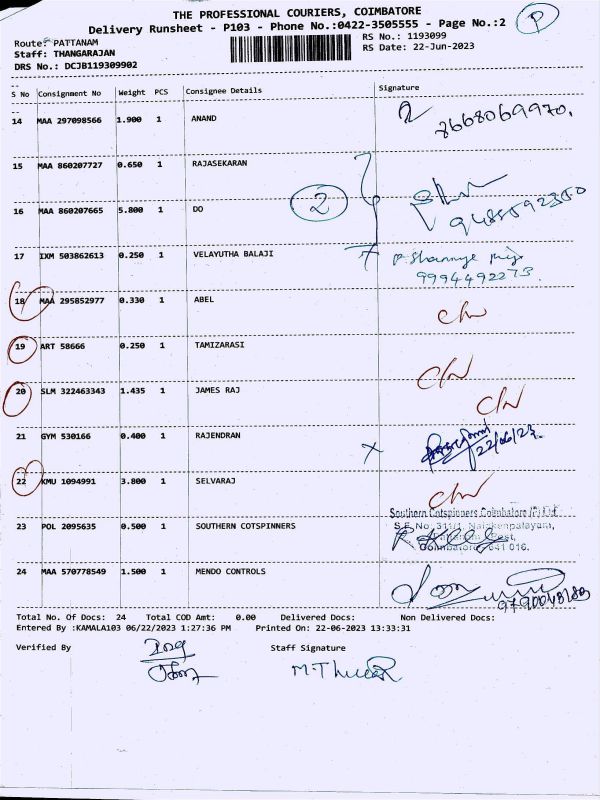 THE PROFESSIONAL COURIERS, COIMBATORE
Delivery Runsheet - P103 - Phone No.:0422-3505555 - Page No.:2 P
Route: PATTANAM
RS No.: 1193099
Staff: THANGARAJAN
RS Date: 22-Jun-2023
DRS No.: DCJB119309902
S No Consignment No Weight PCS Consignee Details Signature
14 MAA 297098566 1.900 1 ANAND 8668069970.
15 MAA 860207727 0.650 1 RAJASEKARAN
2
16 MAA 860207665 5.800 1 DO
17 IXM 503862613 0.250 1 VELAYUTHA BALAJI
9994492273
18 MAA 295852977 0.330 1 ABEL
19 ART 58666 0.250 1 TAMIZARASI
20 SLM 322463343 1.435 1 JAMES RAJ
21 GYM 530166 0.400 1 RAJENDRAN X 22/06/23
22 KMU 1094991 3.800 1 SELVARAJ
Southern Cotspinners Coimbatore (P) Ltd
23 POL 2095635 0.500 1 SOUTHERN COTSPINNERS S.F.No. 311/1, Naickenpalayam,
Post,
Coimbatore - 641 016.
24 MAA 570778549 1.500 1 MENDO CONTROLS
Total No. Of Docs: 24 Total COD Amt: 0.00 Delivered Docs: Non Delivered Docs:
Entered By :KAMALA103 06/22/2023 1:27:36 PM Printed On: 22-06-2023 13:33:31
Verified By Staff Signature